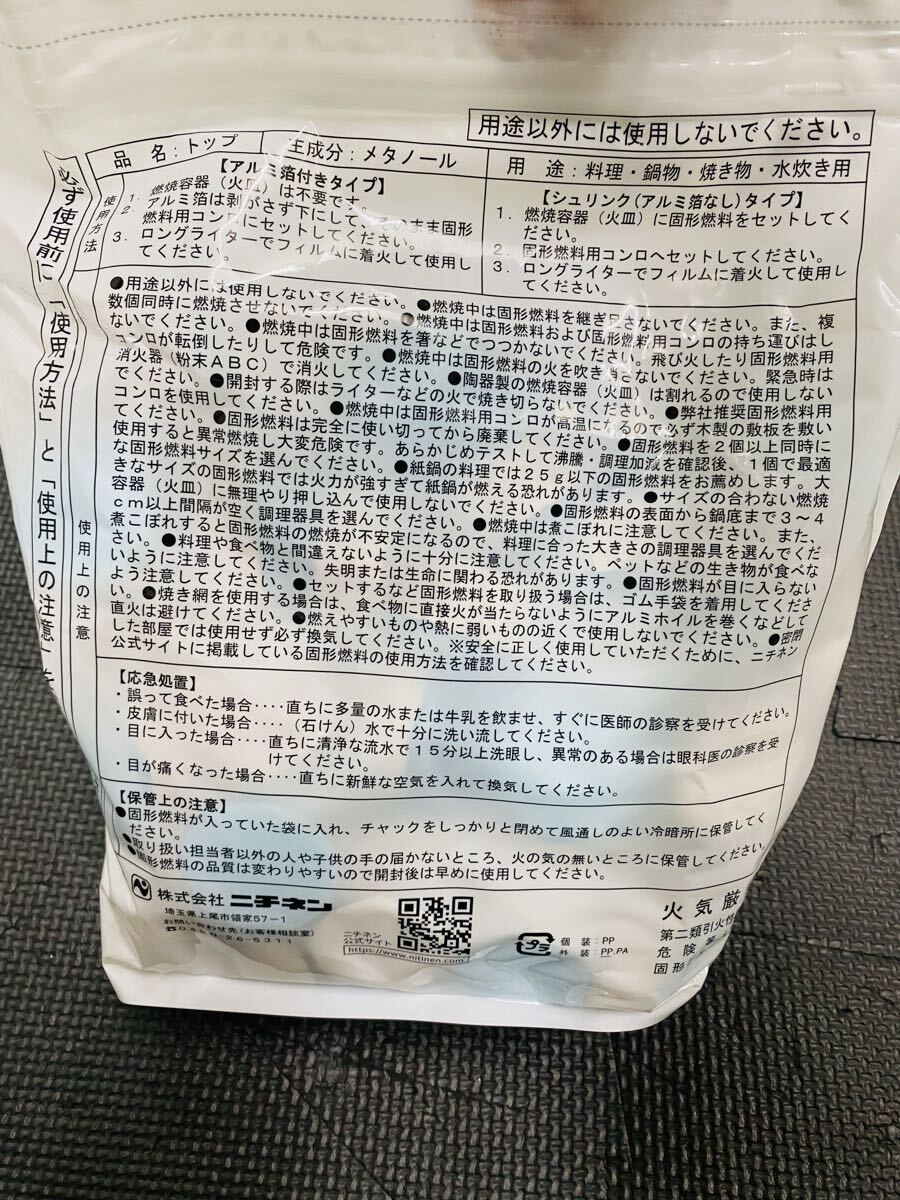 用途以外には使用しないでください。
品 名:トップ
主成分:メタノール
用 途:料理・鍋物・焼き物・水炊き用
必ず使用前に「使用方法」と「使用上の注意」を
使用方法
【アルミ箔付きタイプ】
1. 燃焼容器(火皿)は不要です。
2. アルミ箔は剥がさず下にして、そのまま固形
燃料用コンロにセットしてください。
3. ロングライターでフィルムに着火して使用し
てください。
【シュリンク(アルミ箔なし)タイプ】
1. 燃焼容器(火皿)に固形燃料をセットしてく
ださい。
2. 固形燃料用コンロへセットしてください。
3. ロングライターでフィルムに着火して使用し
てください。
使用上の注意
●用途以外には使用しないでください。●燃焼中は固形燃料を継ぎ足さないでください。また、複
数個同時に燃焼させないでください。●燃焼中は固形燃料および固形燃料用コンロの持ち運びはし
ないでください。●燃焼中は固形燃料を箸などでつつかないでください。飛び火したり固形燃料用
コンロが転倒したりして危険です。●燃焼中は固形燃料の火を吹き消さないでください。緊急時は
消火器(粉末ABC)で消火してください。●陶器製の燃焼容器(火皿)は割れるので使用しない
でください。●開封する際はライターなどの火で焼き切らないでください。●弊社推奨固形燃料用
コンロを使用してください。●燃焼中は固形燃料用コンロが高温になるので必ず木製の敷板を敷い
てください。●固形燃料は完全に使い切ってから廃棄してください。●固形燃料を2個以上同時に
使用すると異常燃焼し大変危険です。あらかじめテストして沸騰・調理加減を確認後、1個で最適
な固形燃料サイズを選んでください。●紙鍋の料理では25g以下の固形燃料をお薦めします。大
きなサイズの固形燃料では火力が強すぎて紙鍋が燃える恐れがあります。●サイズの合わない燃焼
容器(火皿)に無理やり押し込んで使用しないでください。●固形燃料の表面から鍋底まで3~4
cm以上間隔が空く調理器具を選んでください。●燃焼中は煮こぼれに注意してください。また、
煮こぼれすると固形燃料の燃焼が不安定になるので、料理に合った大きさの調理器具を選んでくだ
さい。●料理や食べ物と間違えないように十分に注意してください。ペットなどの生き物が食べな
いように注意してください。失明または生命に関わる恐れがあります。●固形燃料が目に入らない
よう注意してください。●セットするなど固形燃料を取り扱う場合は、ゴム手袋を着用してくださ
い。●焼き網を使用する場合は、食べ物に直接火が当たらないようにアルミホイルを巻くなどして
直火は避けてください。●燃えやすいものや熱に弱いものの近くで使用しないでください。●密閉
した部屋では使用せず必ず換気してください。※安全に正しく使用していただくために、ニチネン
公式サイトに掲載している固形燃料の使用方法を確認してください。
【応急処置】
・誤って食べた場合････直ちに多量の水または牛乳を飲ませ、すぐに医師の診察を受けてください。
・皮膚に付いた場合････(石けん)水で十分に洗い流してください。
・目に入った場合････直ちに清浄な流水で15分以上洗眼し、異常のある場合は眼科医の診察を受
けてください。
・目が痛くなった場合････直ちに新鮮な空気を入れて換気してください。
【保管上の注意】
●固形燃料が入っていた袋に入れ、チャックをしっかりと閉めて風通しのよい冷暗所に保管してく
ださい。
●取り扱い担当者以外の人や子供の手の届かないところ、火の気の無いところに保管してください。
●固形燃料の品質は変わりやすいので開封後は早めに使用してください。
株式会社 ニチネン
埼玉県上尾市領家57-1
お問い合わせ先(お客様相談室)
ニチネン
公式サイト
https://www.nitinen.com
プラ
個 装:PP
外 装:PP,PA
火気厳
第二類引火性
危険等
固形